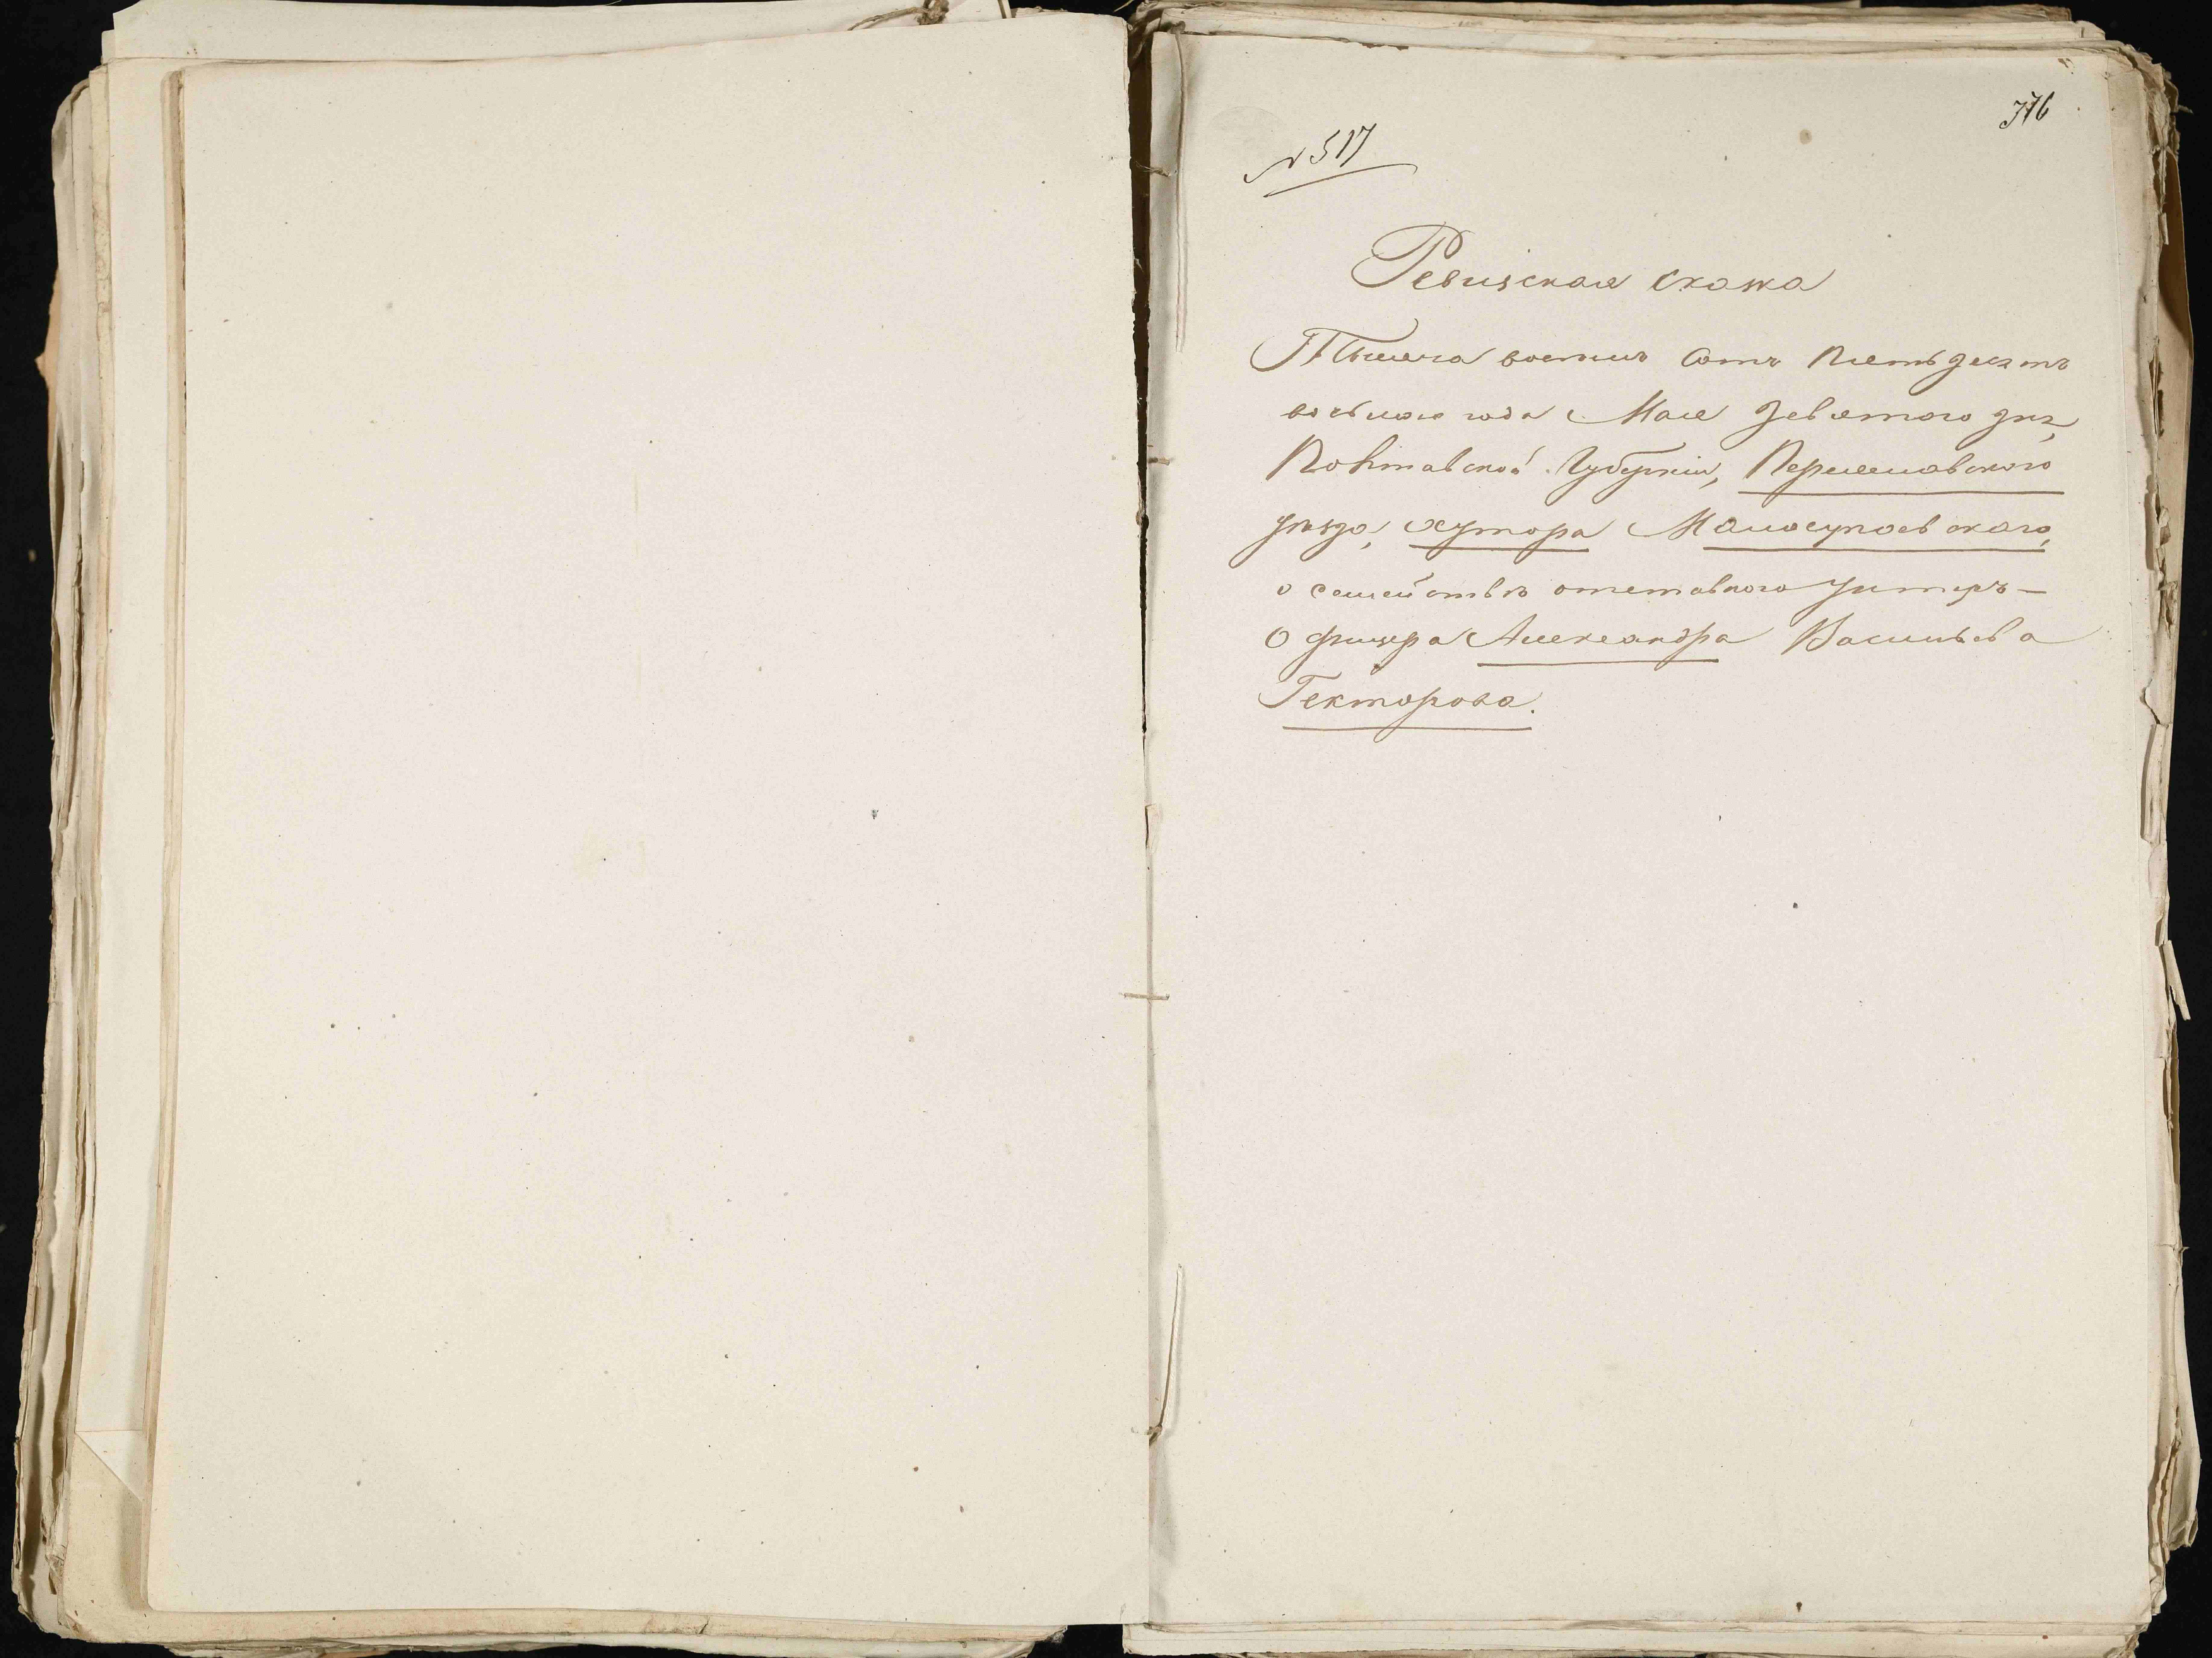 376
№ 517
Ревизская сказка
Тысяча восемь сотъ пятьдесятъ
восьмого года Мая девятого дня,
Полтавской Губерніи, Переяславского
уезда, хутора Малосупоевского,
о семействѣ отставного Унтеръ-
Офицера Александра Васильева
Гекторова.